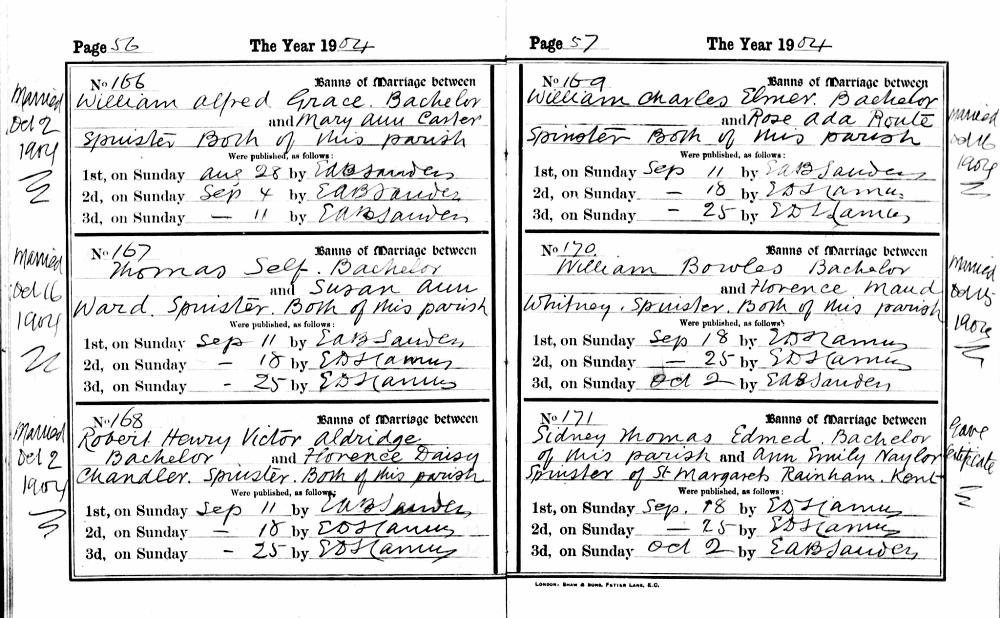 Page 56 The Year 1904
No 166 Banns of Marriage between
William Alfred Grace. Bachelor
and Mary Ann Carter
Spinster Both of this parish
Were published, as follows:
1st, on Sunday Aug 28 by EABSanders
2d, on Sunday Sep 4 by EABSanders
3d, on Sunday — 11 by EABSanders
Married
Oct 2
1904
No 167 Banns of Marriage between
Thomas Self. Bachelor
and Susan Ann
Ward. Spinster. Both of this parish
Were published, as follows:
1st, on Sunday Sep 11 by EABSanders
2d, on Sunday — 18 by
3d, on Sunday - 25 by
Married
Oct 16
1904
No 168 Banns of Marriage between
Robert Henry Victor Aldridge
Bachelor and Florence Daisy
Chandler. Spinster. Both of this parish
Were published, as follows:
1st, on Sunday Sep 11 by EABSanders
2d, on Sunday — 18 by
3d, on Sunday - 25 by
Married
Oct 2
1904
Page 57 The Year 1904
No 169 Banns of Marriage between
William Charles Elmer. Bachelor
and Rose Ada Route
Spinster Both of this parish
Were published, as follows:
1st, on Sunday Sep 11 by EABSanders
2d, on Sunday — 18 by
3d, on Sunday — 25 by
Married
Oct 16
1904
No 170 Banns of Marriage between
William Bowles Bachelor
and Florence Maud
Whitney. Spinster. Both of this parish
Were published, as follows:
1st, on Sunday Sep 18 by
2d, on Sunday — 25 by
3d, on Sunday Oct 2 by EABSanders
Married
Oct 15
1904
No 171 Banns of Marriage between
Sidney Thomas Edmed. Bachelor
of this parish and Ann Emily Naylor
Spinster of St Margarets Rainham. Kent
Were published, as follows:
1st, on Sunday Sep. 18 by
2d, on Sunday — 25 by
3d, on Sunday Oct 2 by EABSanders
Gave
Certificate
London: Shaw & Sons, Fetter Lane, E.C.